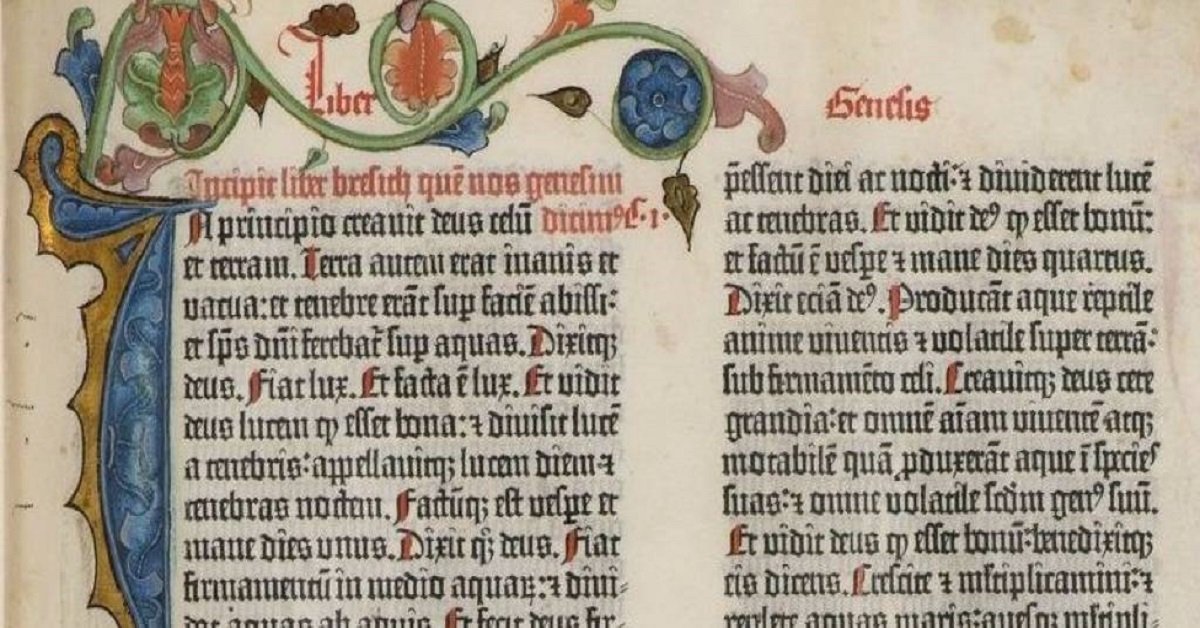 Liber
Genesis
Incipit liber bresich quē nos genesim
In principio creavit deus celū dicim⁹ C. 1.
et terram. Terra autem erat inanis et
vacua: et tenebre erāt sup faciē abissi:
et sp̄s dn̄i ferebat᷑ sup aquas. Dixitqꝫ
deus. Fiat lux. Et facta ē lux. Et vidit
deus lucem ꝙ esset bona: ⁊ divisit lucē
a tenebris: appellavitqꝫ lucem diem ⁊
tenebras noctem. Factūqꝫ est vespe et
mane dies unus. Dixit qꝫ deus. Fiat
firmamentū in medio aquaꝝ: ⁊ divi-
dat aquas ab aquis. Et fecit deus fir-
p̄essent diei ac nocti: ⁊ dividerent lucē
ac tenebras. Et vidit de⁹ ꝙ esset bonū:
et factū ē vespe ⁊ mane dies quartus.
Dixit eciā de⁹. Producāt aque reptile
anime viventis ⁊ volatile super terrā:
sub firmamēto celi. Creavitqꝫ deus cete
grandia: et omnē aīam viventē atqꝫ
motabilē quā ꝓduxerāt aque ī species
suas: ⁊ omne volatile scdm gen⁹ suū.
Et vidit deus ꝙ esset bonū: benedixitqꝫ
eis dicens. Crescite ⁊ mltiplicamini: ⁊
replete aquas maris: avesqꝫ mltipli-